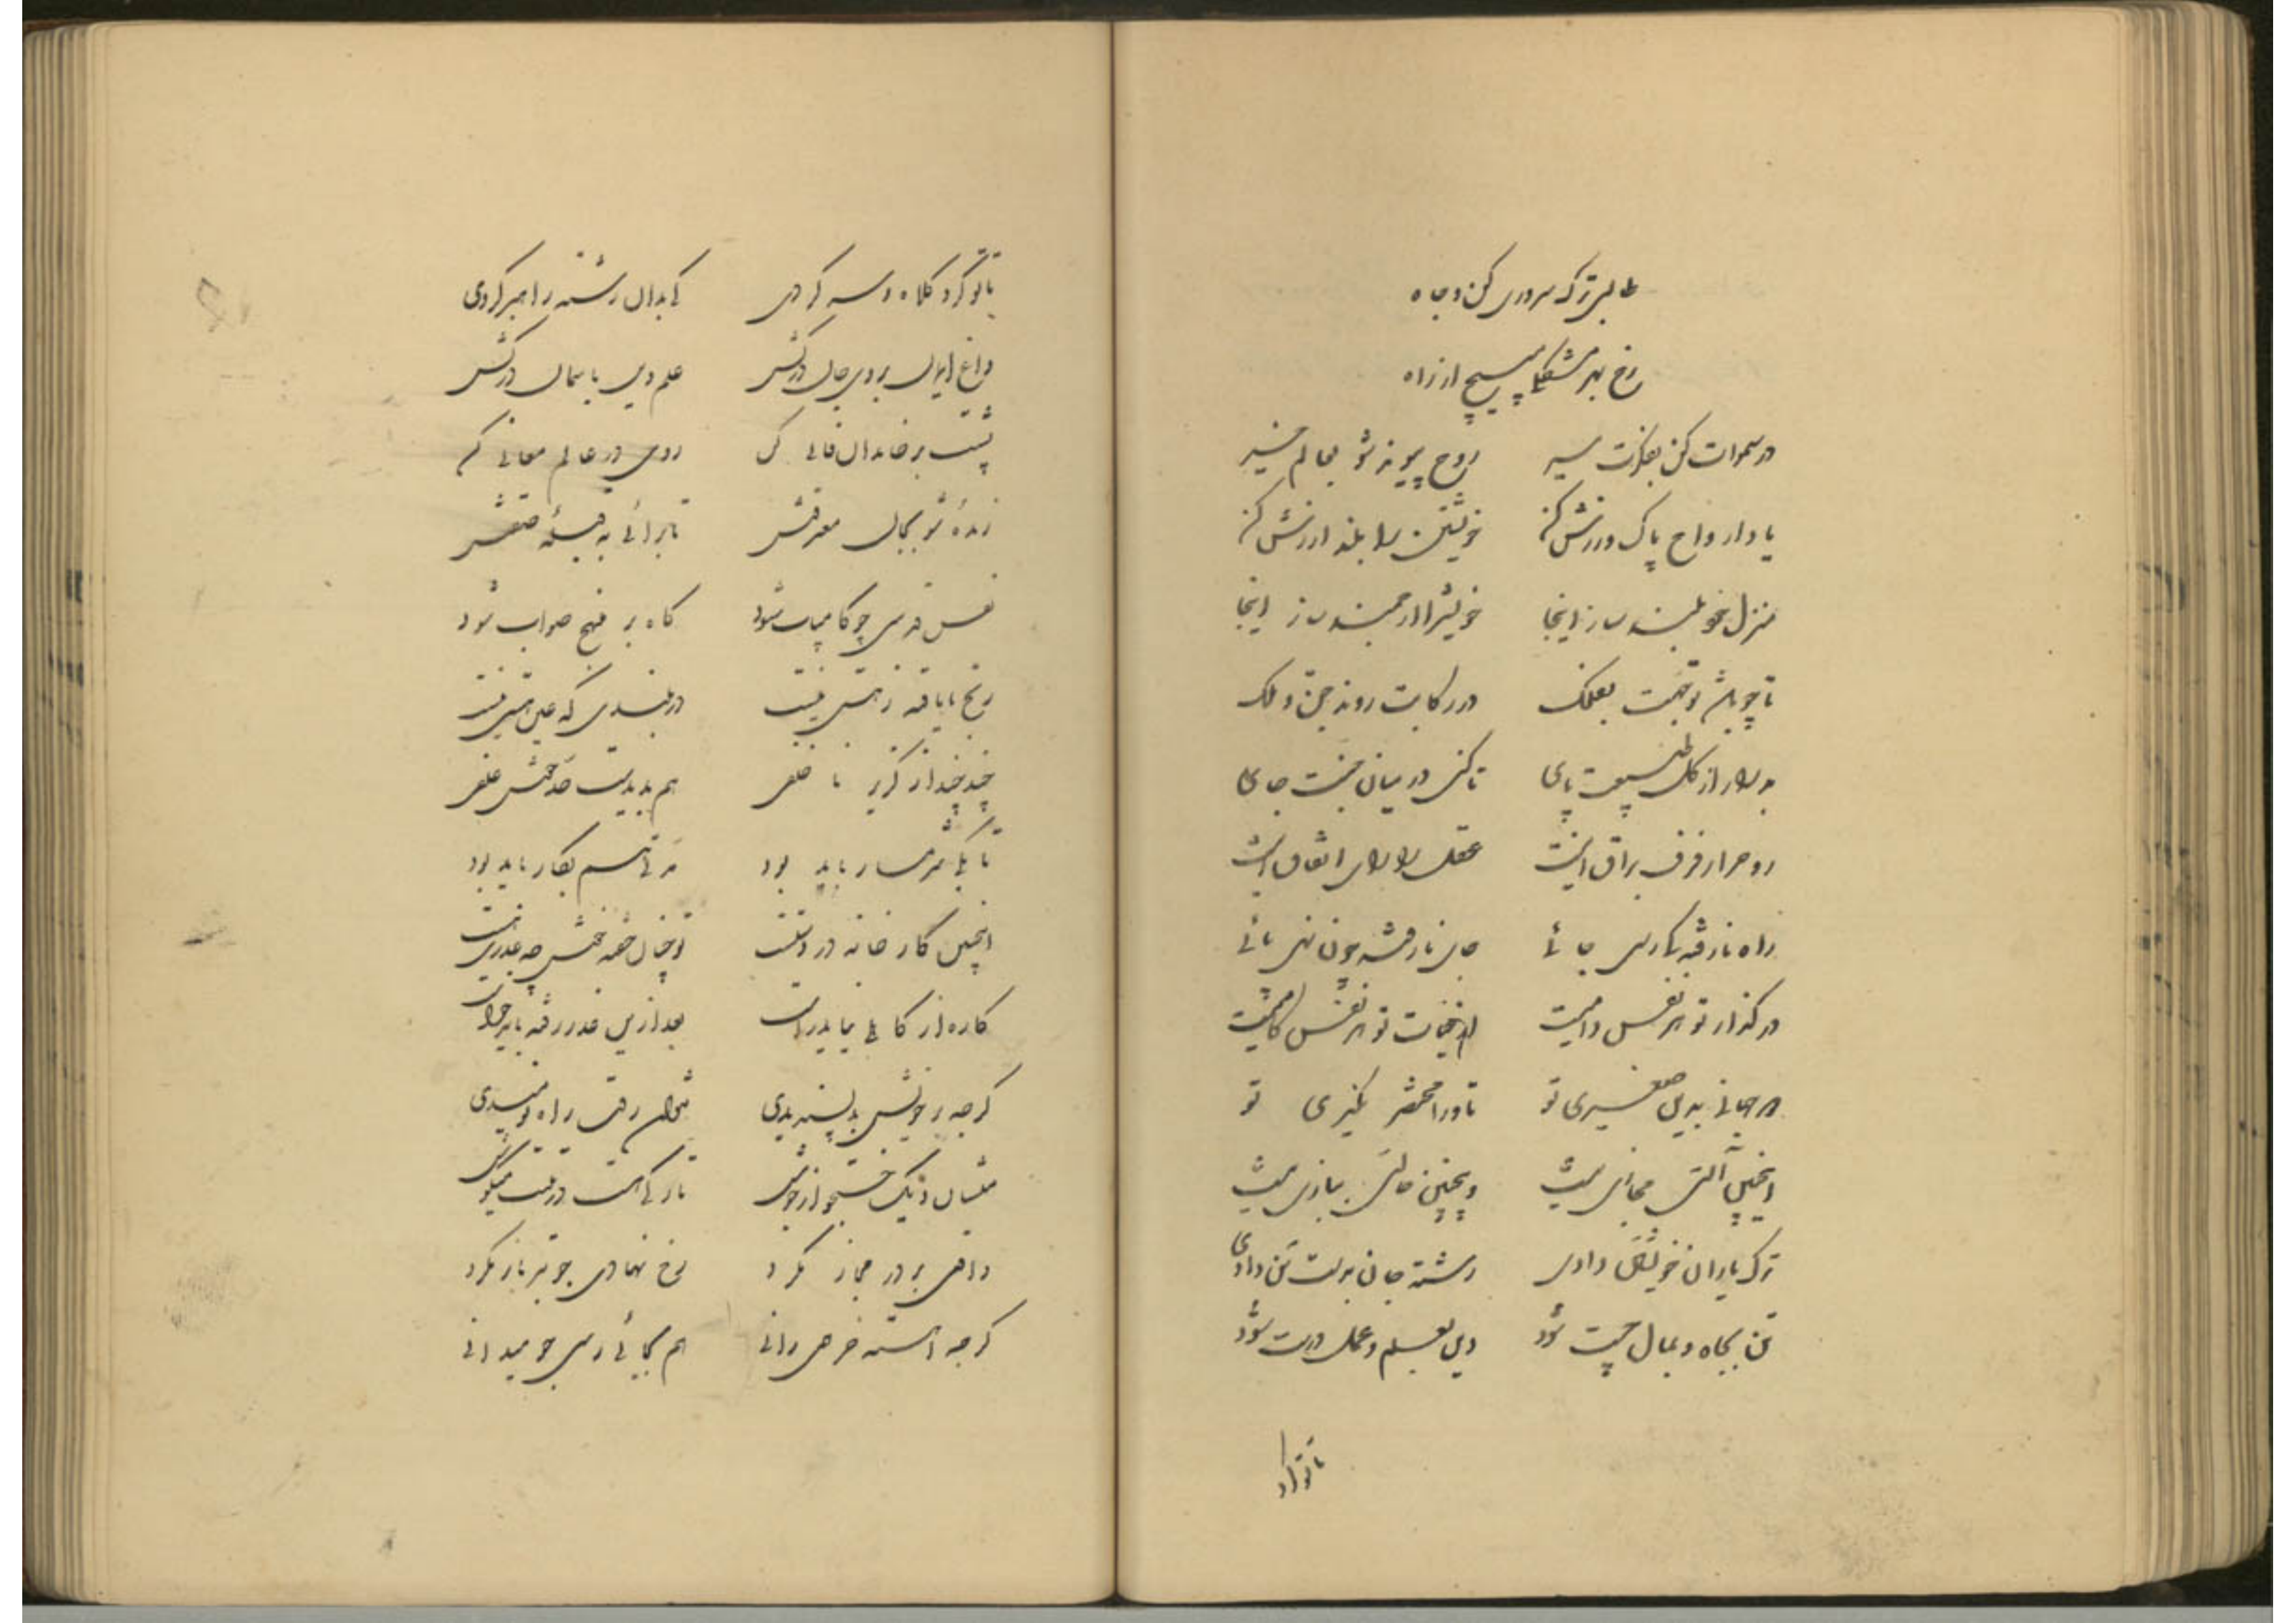 طالبی ترک سروری کن و جاه
رخ بهر مشغله مپیچ از راه
در سموات کن بفکرت سیر روح پیوند شو بعالم خیر
یاد ارواح پاک ورزش کن خویشتن را بلند ارزش کن
منزل خود بلند ساز اینجا خویش را ارجمند ساز اینجا
تا چو باشد توجهت بفلک در رکابت روند جن و ملک
بدر ار از کل طبیعت پای تا کنی در میان جنت جای
روح را رفرف براق اینست عقل را رای اتفاق اینست
راه نارفته کی رسی جائی جان نارفته چون نهی پائی
در کذار تو هر نفس دامیست از نجات تو هر نفس کامیست
در جهانی بدین صغیری تو تا در او محتشر نمیری تو
اینچنین آلتی مجازی نیست وینچنین حالتی ببازی نیست
ترک یاران خویشتن دادی رشته جان بدست تن دادی
تن بجاه و بمال چست شود دین بعلم و عمل درست شود
تا تو کرد
تا تو کرد کلاه و سر کردی کی بدان رشته راهبر کردی
داغ ایمان بروی جان درکش علم دین باسمان درکش
پشت بر خاندان فانی کن روی در عالم معانی کن
زنده شو بجمال معرفتش تا برائی به صفتش
نفس قدسی چو کامیاب شود کاه بر نهج صواب شود
رنج نایافته ز هستی نیست در بلندی که عین پستی نیست
چند چند از کزیر نا خلفی هم بدیدت علفی
تا یکی شرمسار باید بود مدتی هم بکار باید بود
اینچنین کارخانه در دستت تو چنان خفته چه عذرت هست
کاره از کاهلی نیاید راست بعد ازین عذر رفته باید خواست
کرچه بر خویش بد پسندیدی نتوان رفت راه نومیدی
مشان دیک جستجو از جوش تا رکی هست در تنت میکوش
واقفی بر در مجاز مکرد رخ نهادی چو تیر باز مکرد
کرچه آهسته خر همی رانی هم بجائی رسی چو میدانی